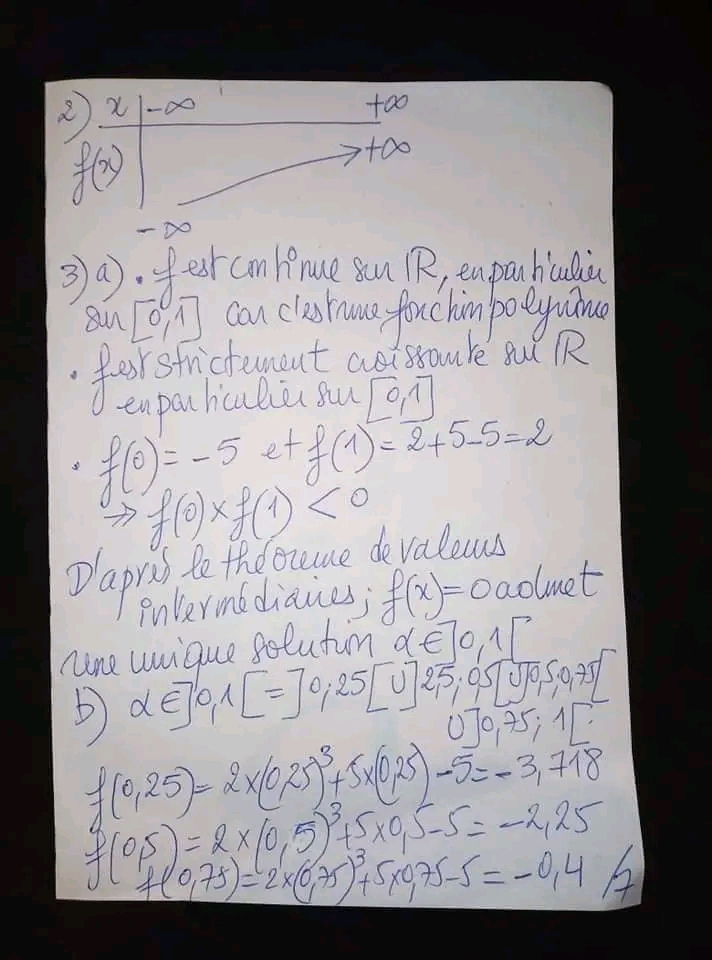 2) x | -∞ +∞
f(x) | → +∞
-∞
3) a) • f est continue sur IR, en particulier
sur [0,1] car c'est une fonction polynôme
• f est strictement croissante sur IR
en particulier sur [0,1]
• f(0) = -5 et f(1) = 2+5-5 = 2
⇒ f(0) × f(1) < 0
D'après le théoreme de valeurs
intermédiaires; f(x) = 0 admet
une unique solution α ∈ ]0,1[
b) α ∈ ]0,1[ = ]0,25[ U ]2,5; 0,5[ U ]0,5; 0,75[
U ]0,75; 1[.
f(0,25) = 2×(0,25)³+5×(0,25)-5 = -3,718
f(0,5) = 2×(0,5)³+5×0,5-5 = -2,25
f(0,75) = 2×(0,75)³+5×0,75-5 = -0,4